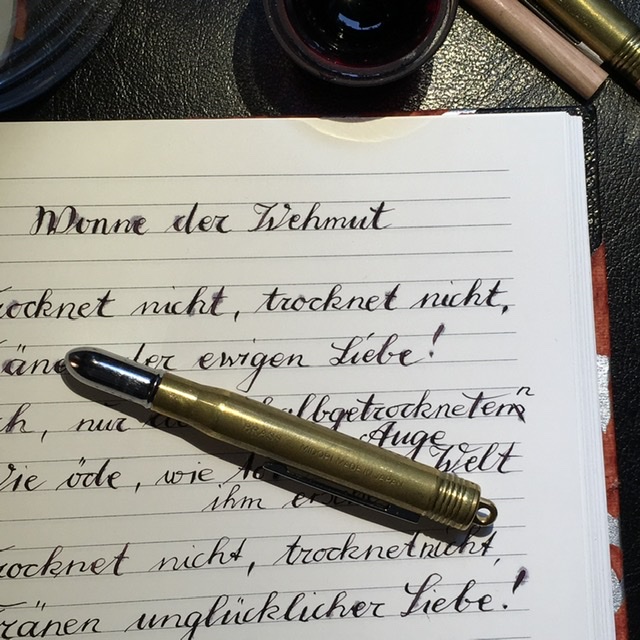 Wonne der Wehmut
rocknet nicht, trocknet nicht,
äne der ewigen Liebe!
ch, nur halbgetrockneten
Auge
Vie öde, wie Welt
ihm
rocknet nicht, trocknet nicht,
ränen unglücklicher Liebe!